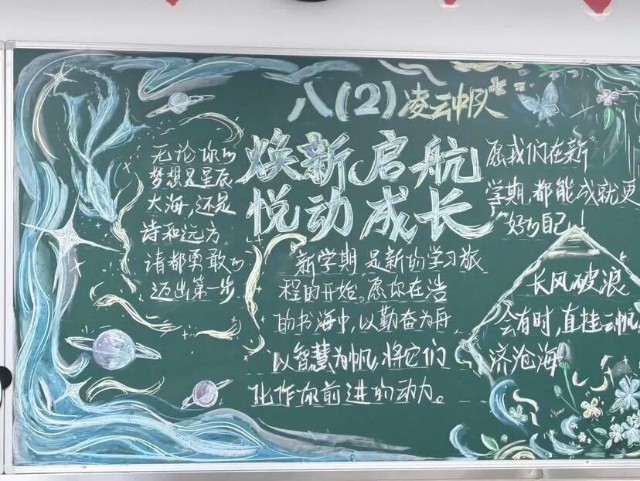 八(2)凌云中队
焕新启航
悦动成长
无论你的
梦想是星辰
大海,还是
诗和远方
请都勇敢的
迈出第一步
新学期是新的学习旅
程的开始。愿你在浩
的书海中,以勤奋为舟
以智慧为帆,将它们
化作你前进的动力。
愿我们在新
学期,都能成就更
好的自己!
长风破浪
会有时,直挂云帆
济沧海